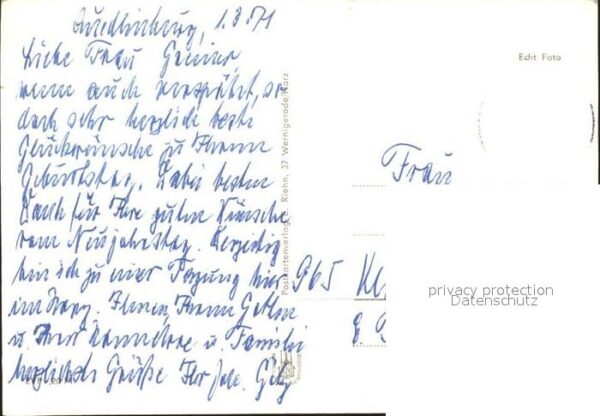 Quedlinburg, 1.3.71
Liebe Frau
wenn auch verspätet, so
doch sehr herzlich beste
Glückwünsche zu Ihrem
Geburtstag. Dabei besten
Dank für Ihre guten Wünsche
vom Neujahrstag. Derzeitig
bin ich zu einer Tagung hier
im Harz. Ihnen, Ihrem Gatten
u. Ihrer Hannelore u. Familie
herzlichste Grüße Ihr
Postkartenverlag Riehn, 37 Wernigerode/Harz
Echt Foto
Frau
965
privacy protection
Datenschutz